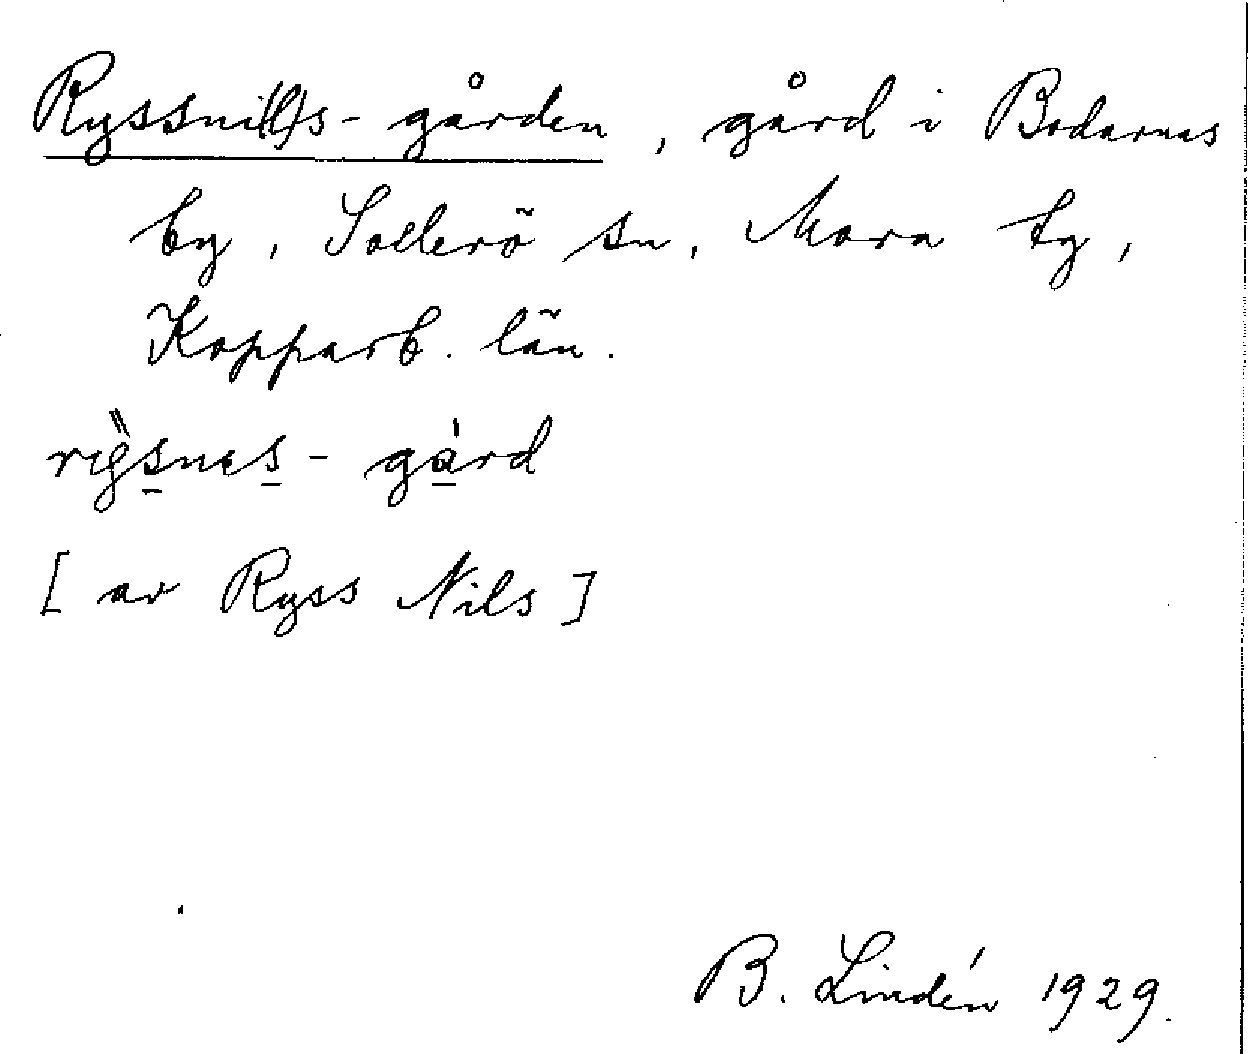 Ryssni(l)s-gården, gård i Bodarnas
by, Sollerö sn, Mora tg,
Kopparb. län.
-gård
[av Ryss Nils]
B. Lindén 1929.